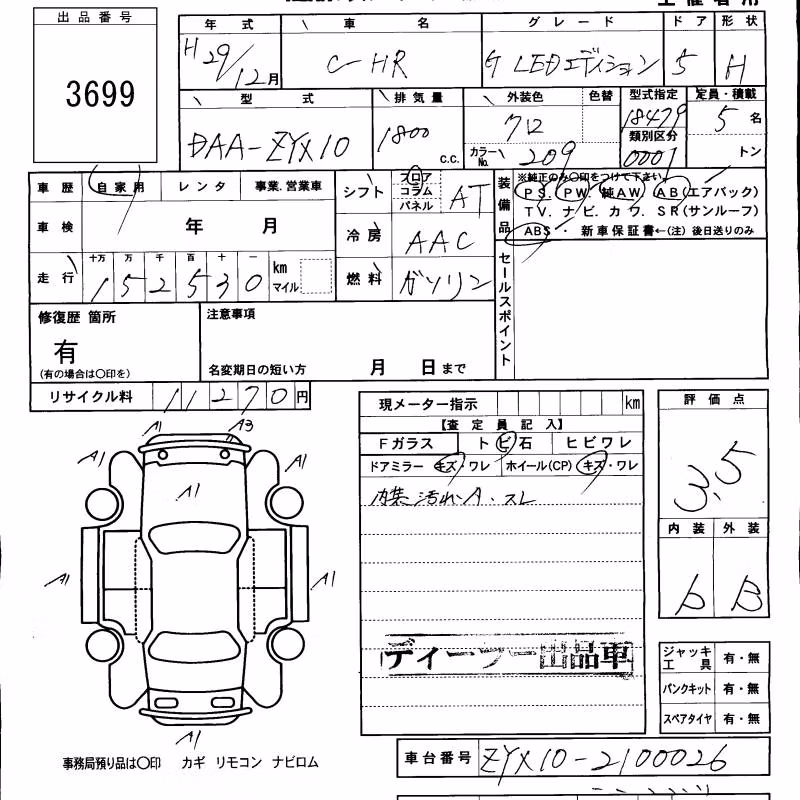 出品番号
3699
年式 車名 グレード ドア 形状
H 29/12月 C-HR G LEDエディション 5 H
型式 排気量 外装色 色替 型式指定 定員・積載
DAA-ZYX10 1800 c.c. 712 18479 5 名
カラーNo. 209 類別区分 0001 トン
車歴 自家用 レンタ 事業.営業車
シフト フロア コラム パネル AT
装備品 ※純正のみ〇印をつけて下さい
PS. PW. 純AW. AB(エアバック)
TV. ナビ. カワ. SR(サンルーフ)
ABS・ 新車保証書←(注) 後日送りのみ
車検 年 月
冷房 AAC
走行 十万 万 千 百 十 一
152530 km マイル
燃料 ガソリン
セールスポイント
修復歴 箇所
有
(有の場合は〇印を)
注意事項
名変期日の短い方 月 日まで
リサイクル料 11270円
現メーター指示 km
【査定員記入】
Fガラス トビ石 ヒビワレ
ドアミラー キズ・ワレ ホイール(CP) キズ・ワレ
内装汚れ・A・スレ
評価点
3.5
内装 外装
b B
A1 A3
A1 A1
A1
A1 A1
A1
ディーラー出品車
ジャッキ工具 有・無
パンクキット 有・無
スペアタイヤ 有・無
事務局預り品は〇印 カギ リモコン ナビロム
車台番号 ZYX10-2100026